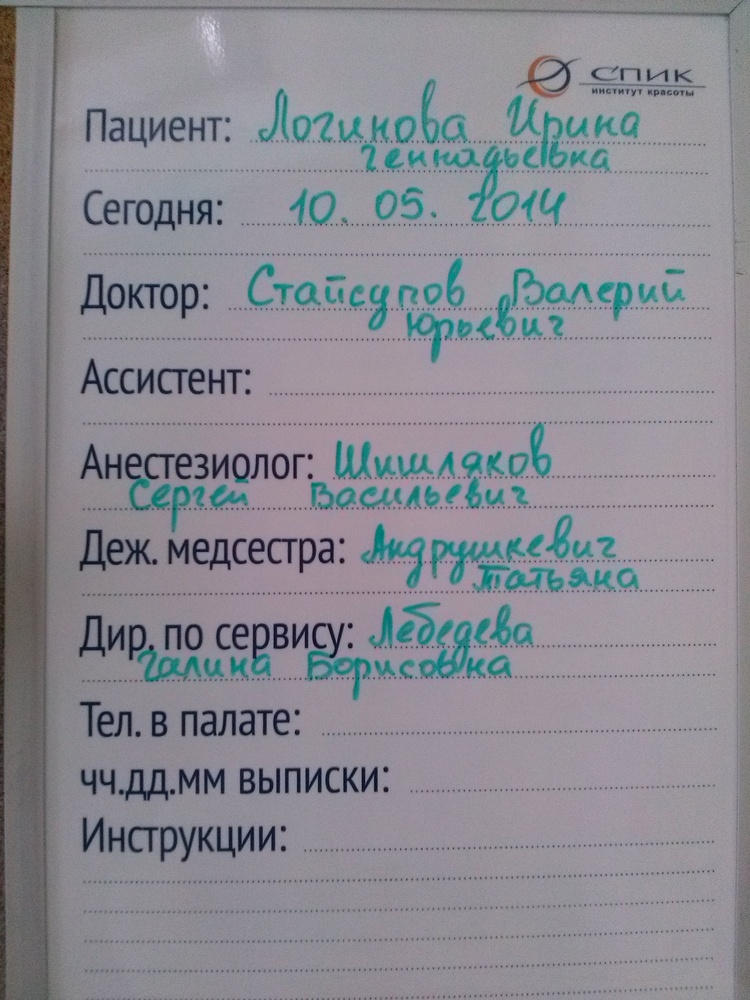 СПИК
институт красоты
Пациент: Логинова Ирина
Геннадьевна
Сегодня: 10. 05. 2014
Доктор: Стайсупов Валерий
Юрьевич
Ассистент:
Анестезиолог: Шишляков
Сергей Васильевич
Деж. медсестра: Андрушкевич
Татьяна
Дир. по сервису: Лебедева
Галина Борисовна
Тел. в палате:
чч.дд.мм выписки:
Инструкции: